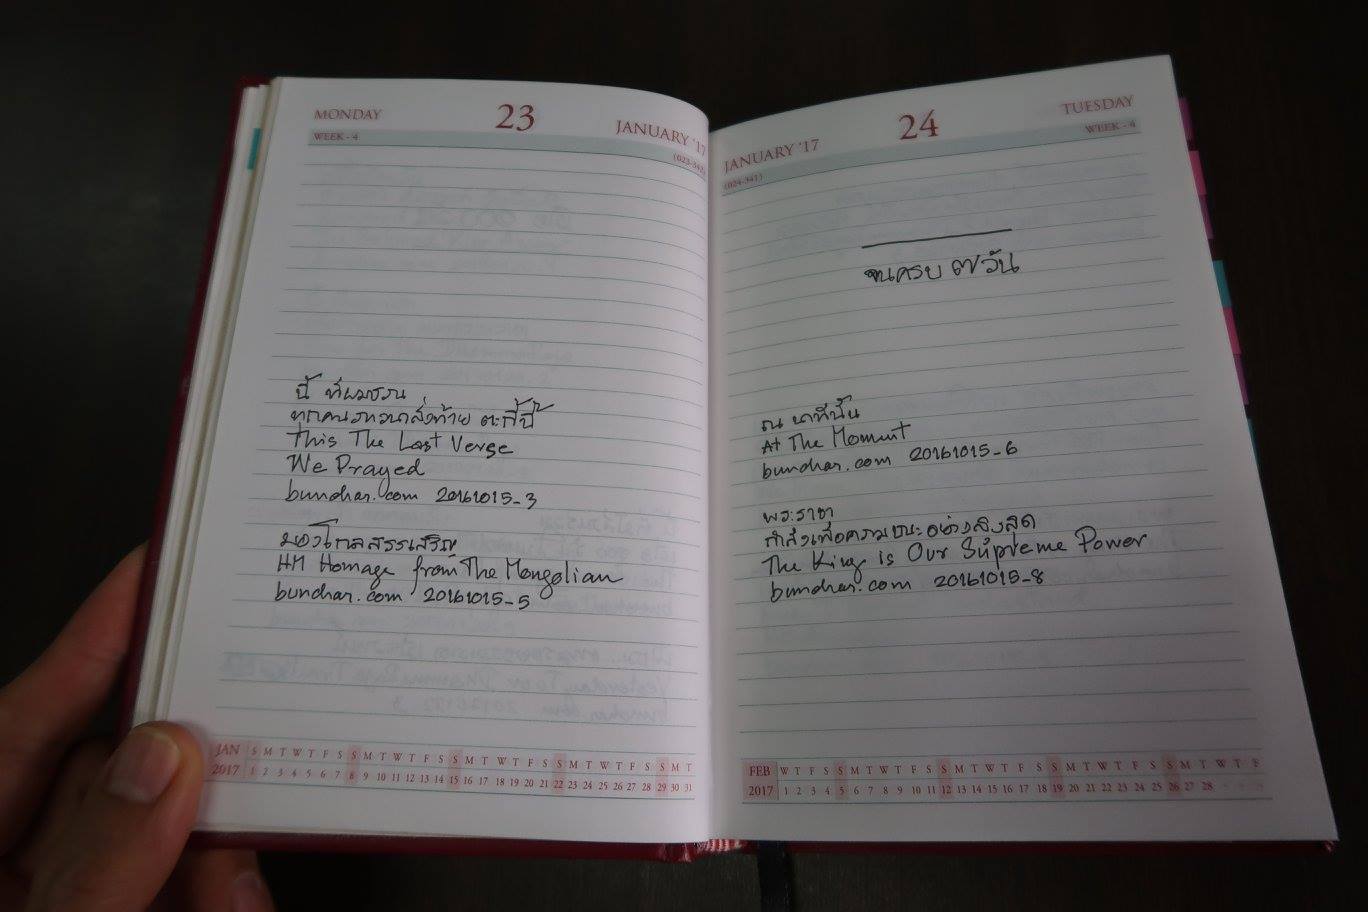 MONDAY 23 JANUARY '17
WEEK - 4 (023-342)
นี้
ส่งท้าย
This The Last Verse
We Prayed
bunchar.com 20161015-3
มองโกลสรรเสริญ
HM Homage from The Mongolian
bunchar.com 20161015-5
JAN S M T W T F S S M T W T F S S M T W T F S S M T W T F S S M T
2017 1 2 3 4 5 6 7 8 9 10 11 12 13 14 15 16 17 18 19 20 21 22 23 24 25 26 27 28 29 30 31
JANUARY '17 24 TUESDAY
(024-341) WEEK - 4
ครบ ๗ วัน
ณ นาทีนั้น
At The Moment
bunchar.com 20161015-6
พระราชา
The King is Our Supreme Power
bunchar.com 20161015-8
FEB W T F S S M T W T F S S M T W T F S S M T W T F S S M T W T F
2017 1 2 3 4 5 6 7 8 9 10 11 12 13 14 15 16 17 18 19 20 21 22 23 24 25 26 27 28